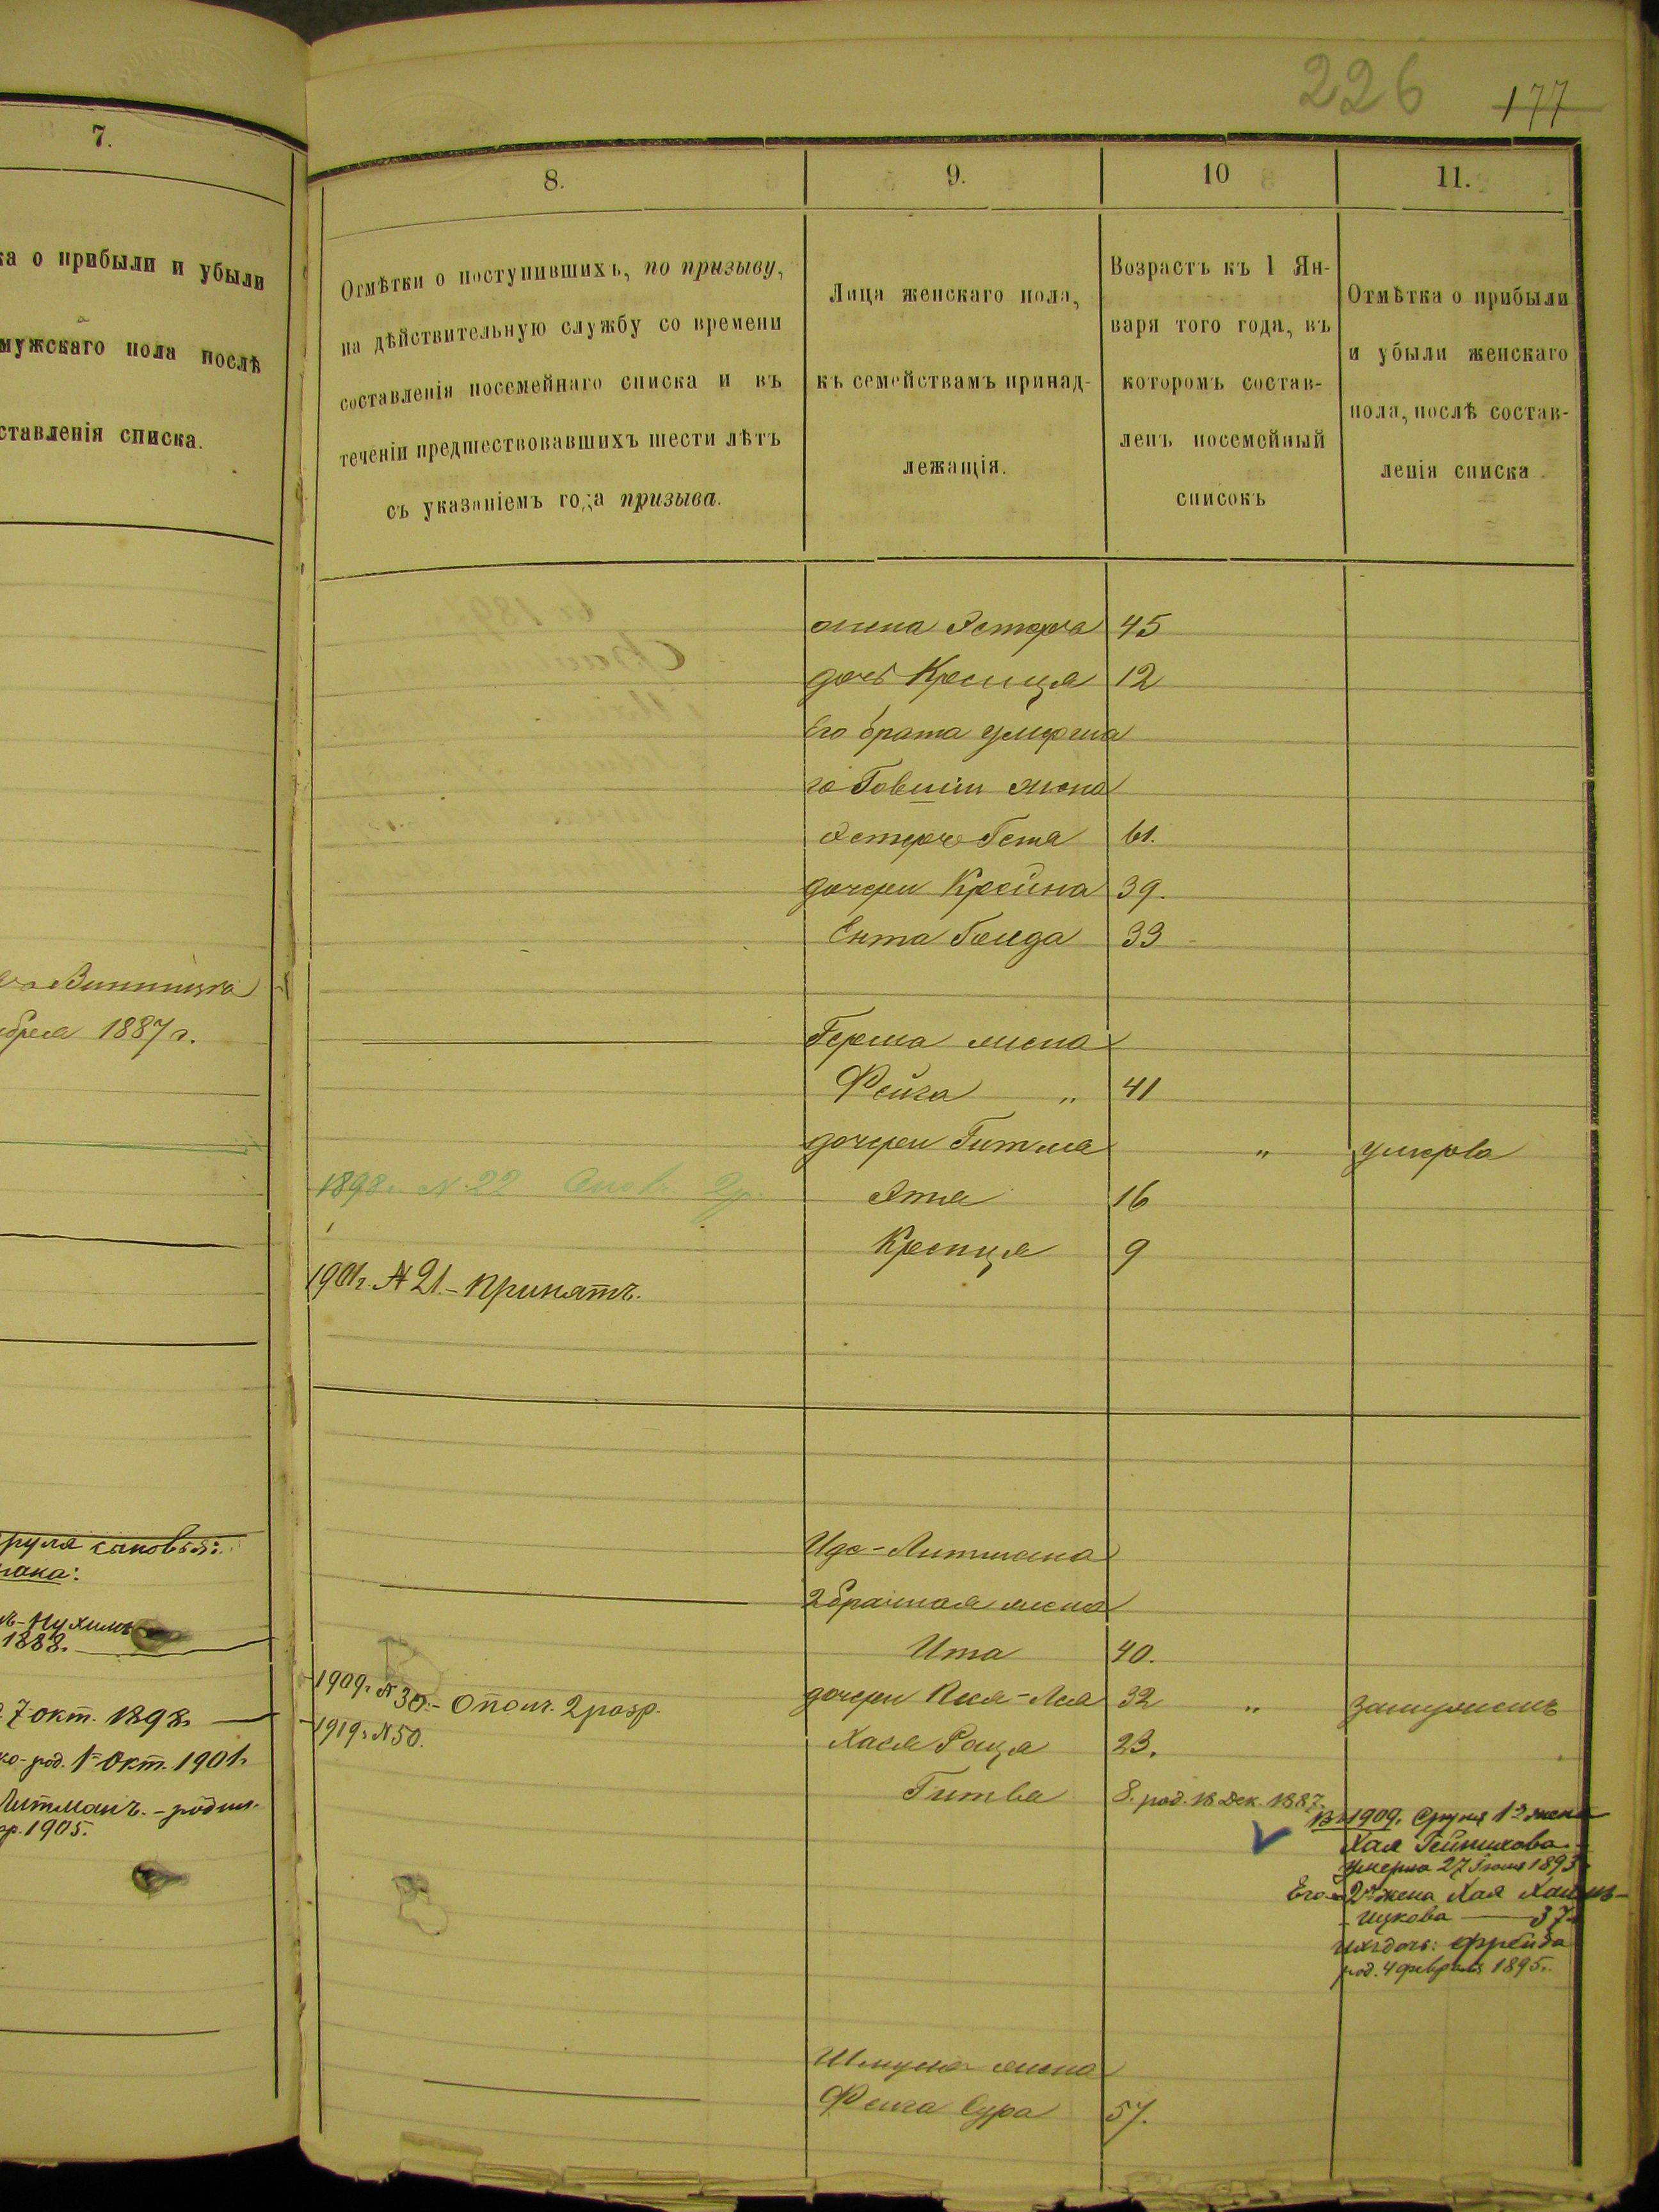 226 177
7.
ка о прибыли и убыли
мужскаго пола послѣ
ставленія списка.
Винница
бря 1887 г.
руля сыновья:
Нухимъ
1888.
7 окт. 1898
род. 1 Окт. 1901
Литманъ. - родил.
1905.
8. 9. 10 11.
Отмѣтки о поступившихъ, по призыву,
на дѣйствительную службу со времени
составленія посемейнаго списка и въ
теченіи предшествовавшихъ шести лѣтъ
съ указаніемъ года призыва.
Лица женскаго пола,
къ семействамъ принад-
лежащія.
Возрастъ къ 1 Ян-
варя того года, въ
которомъ состав-
ленъ посемейный
списокъ
Отмѣтка о прибыли
и убыли женскаго
пола, послѣ состав-
ленія списка
жена Эстера 45
дочь Кресиця 12
Его брата умерша
го Говшіи жена
Эстеръ Геня 61.
дочери Крейна 39.
Ента Голда 33
Герша жена
Фейга " 41
дочери Гитля " умерла
1898 г. № 22 2 р. Этя 16
Кресиця 9
1901 г. № 21. - Принятъ.
Иде-Литмана
2 брачная жена
Ита 40.
1909 г. № 30. - Ополч. 2 разр. дочери Пся-Лея 32 " Замужемъ
1919 г. № 50. Хася Раця 23.
Гитля 8. род. 18 Дек. 1887.
Въ 1909. Сруля 1я жена
Хая
умерла 27 1893
Его 2я жена Хая Хаимъ-
Ицкова 37
ихъ дочь: Фрейда
род. 4 февраля 1895.
Шмуля жена
Фейга Сура 57.